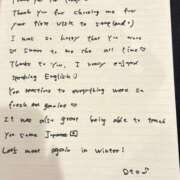 Thank you for choosing me for
your first visit to
I was so happy that you were
so sweet to me the all time
Thanks to you, I really enjoyed
speaking English
Your reactions to everything were so
fresh and genuine
It was also great being able to teach
you some Japanese
Let's meet again in Winter!